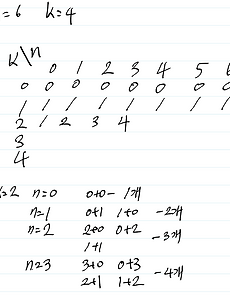 =6 k=4
k\n 0 1 2 3 4 5 6
0 0 0 0 0 0 0 0
1 1 1 1 1 1 1 1
2 1 2 3 4
3
4
k=2 n=0 0+0 - 1개
n=1 0+1 1+0 - 2개
n=2 2+0 0+2 - 3개
1+1
n=3 3+0 0+3 - 4개
2+1 1+2